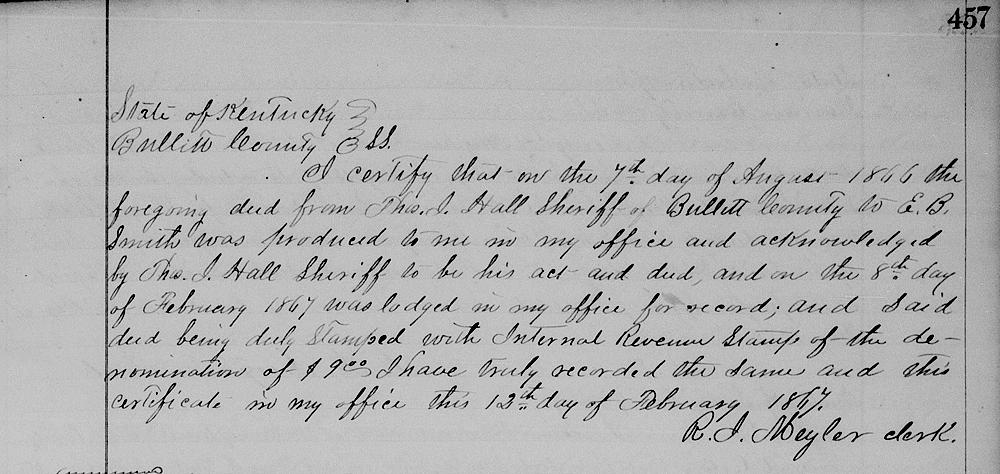 457
State of Kentucky }
Bullitt County } SS.
I certify that on the 7th day of August 1866 the
foregoing deed from Thos. J. Hall Sheriff of Bullitt County to E. B.
Smith was produced to me in my office and acknowledged
by Tho. J. Hall Sheriff to be his act and deed, and on the 8th day
of February 1867 was lodged in my office for record; and said
deed being duly stamped with Internal Revenue Stamp of the de-
nomination of $9.00 I have truly recorded the same and this
certificate in my office this 12th day of February 1867.
R. J. Meyler clerk.